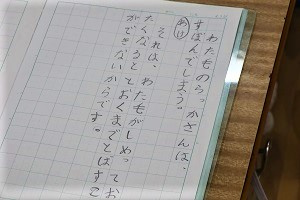 わたものらっかさんは、
すぼんでしまう。
わけ
それは、わたもがしめってお
たくなると とおくまでとばすこ
ができないからです。